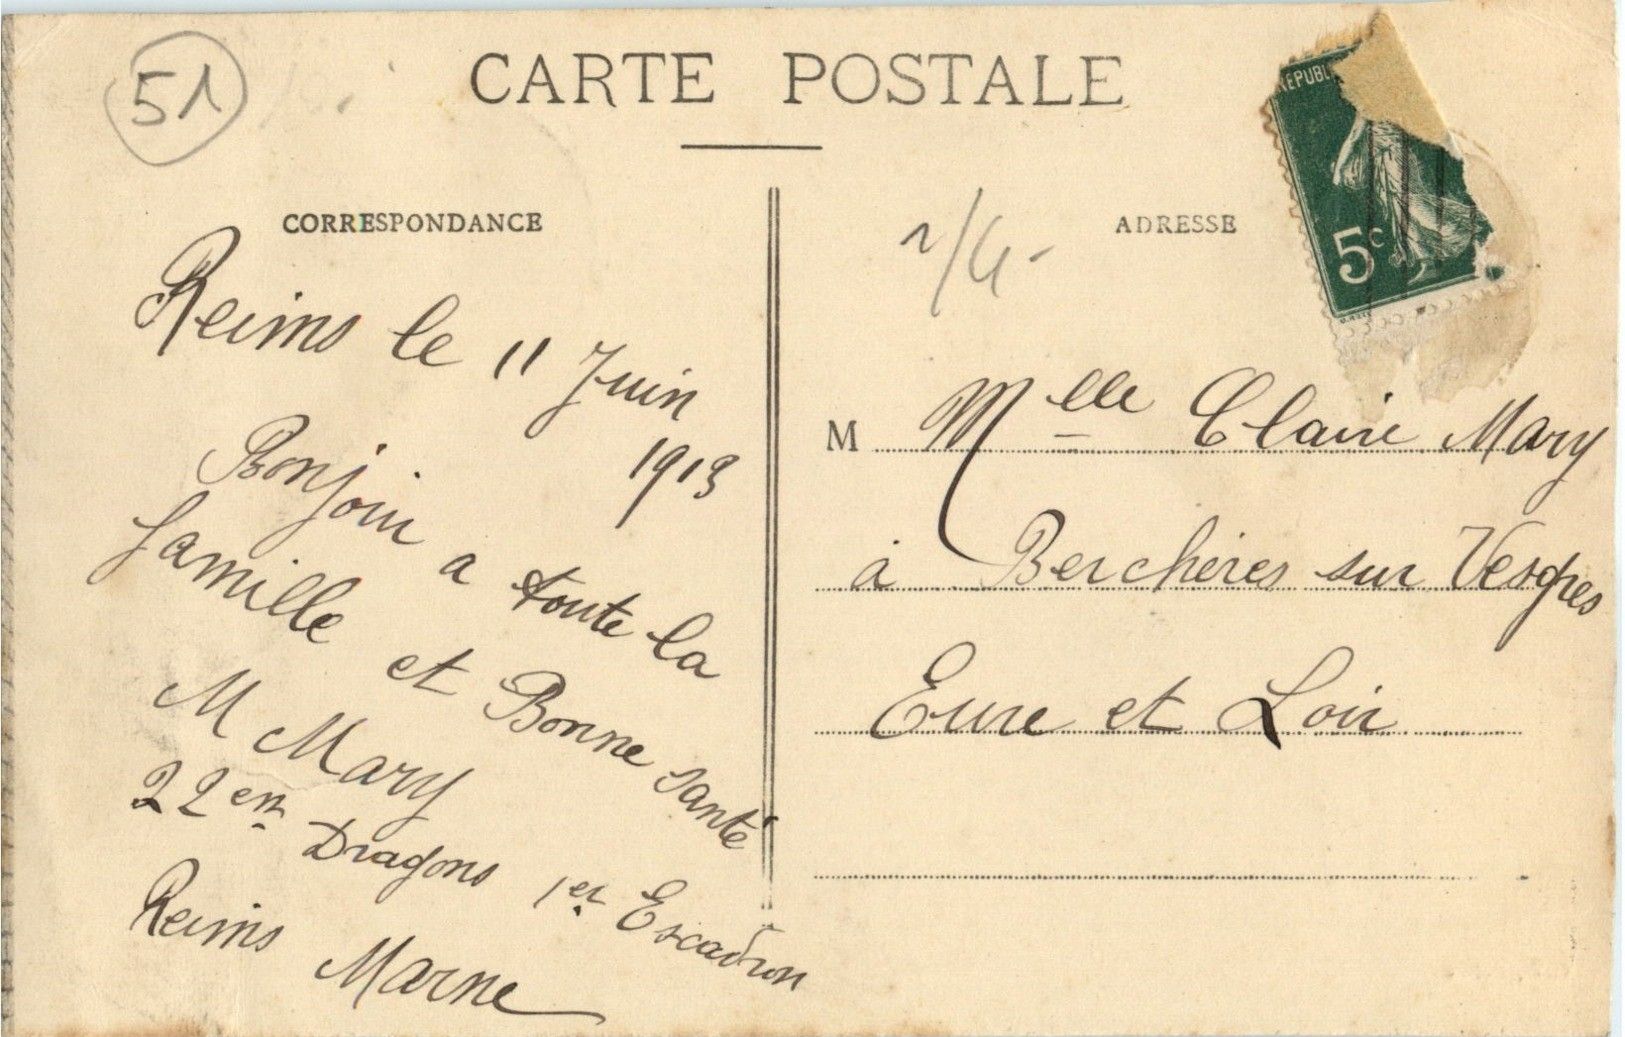 51
CARTE POSTALE
CORRESPONDANCE
Reims le 11 Juin
1913
Bonjour a toute la
famille et Bonne santé
M Mary
22em Dragons 1er Escadron
Reims Marne
ADRESSE
REPUBL
5c
M Mlle Claire Mary
à Berchères sur Vesgres
Eure et Loir